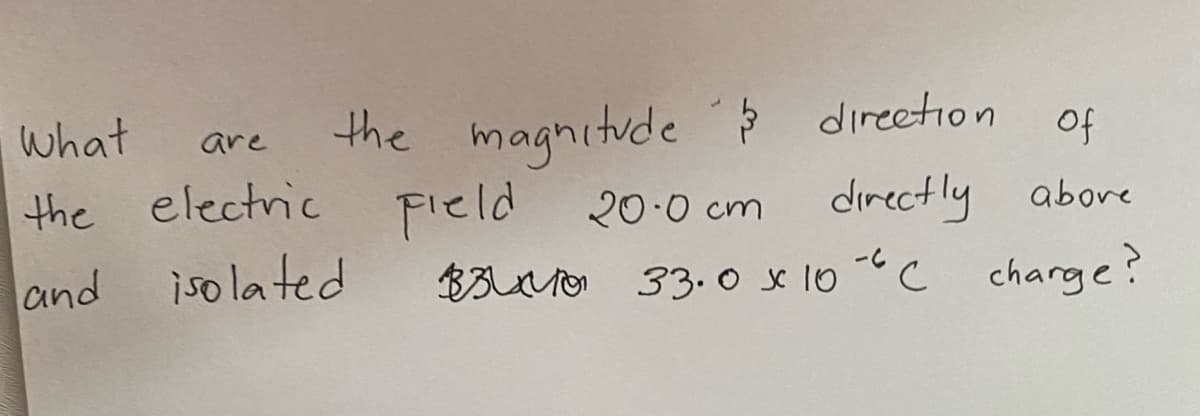 What are the magnitude & direction of
the electric Field 20.0 cm directly above
and isolated 33.0 x 10⁻⁶ C charge?